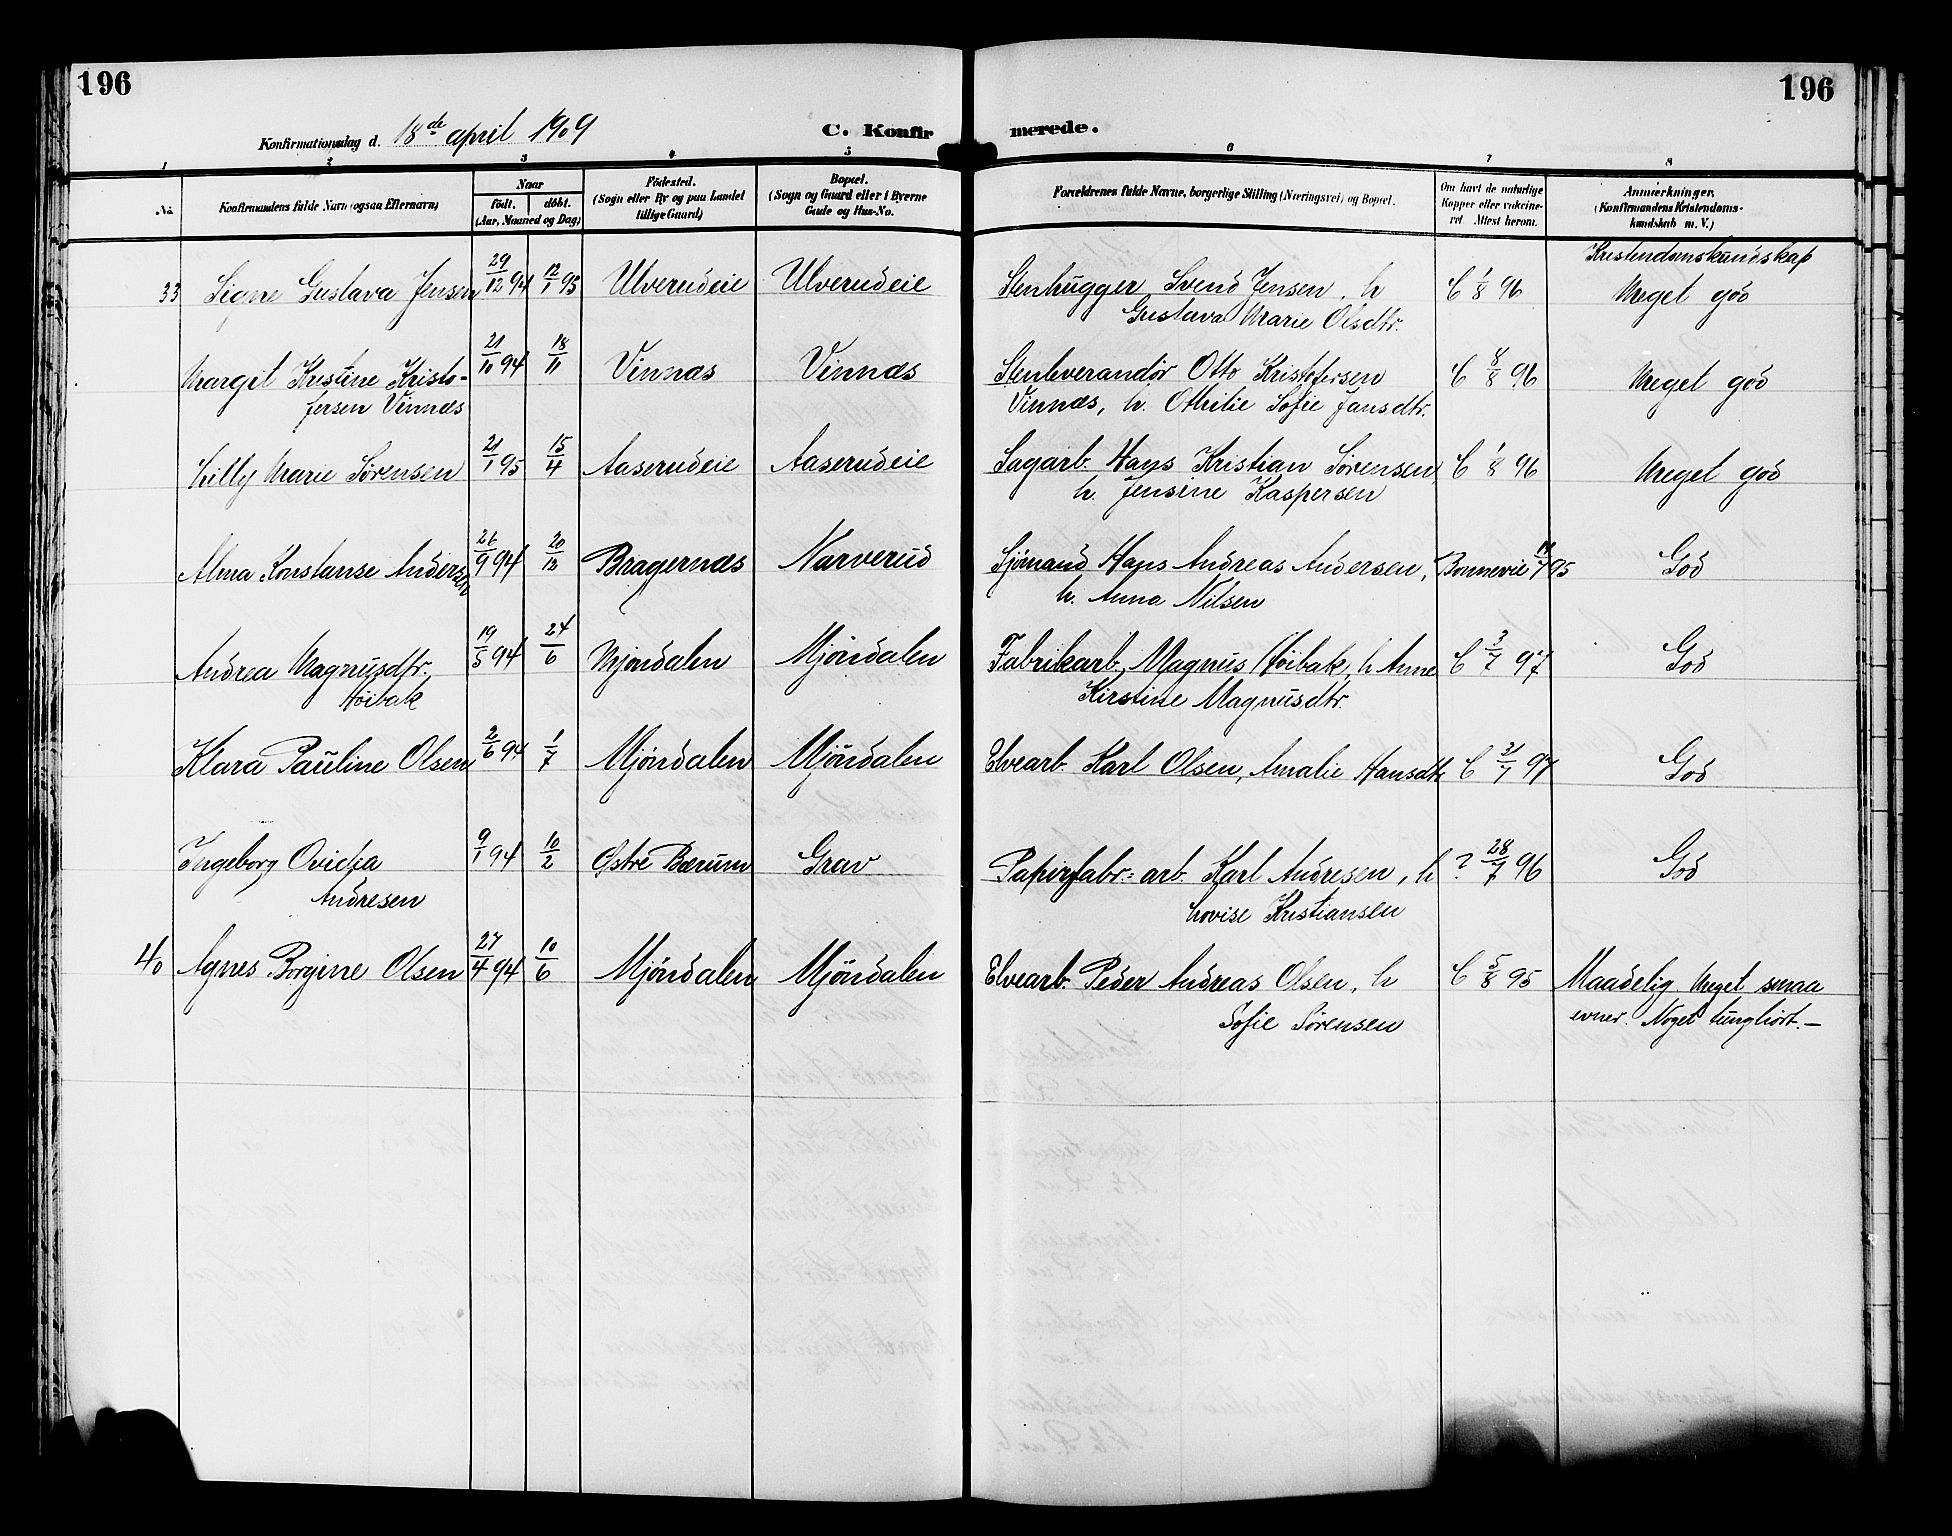 196
196
Konfirmationsdag d. 18de april 1909
C. Konfirmerede.
1 2 3 4 5 6 7 8
No.
Konfirmandens fulde Navn (ogsaa Efternavn)
Naar
født. døbt.
(Aar, Maaned og Dag)
Fødested.
(Sogn eller By og paa Landet
tillige Gaard)
Bopæl.
(Sogn og Gaard eller i Byerne
Gade og Hus-No.
Forældrenes fulde Navne, borgerlige Stilling (Næringsvei) og Bopæl.
Om havt de naturlige
Kopper eller vakcine-
ret. Attest herom.
Anmærkninger.
(Konfirmandens Kristendoms-
kundskab m. V.)
Kristendomskundskap
33 Signe Gustava Jensen 29/12 94 12/1 95 Ulverudeie Ulverudeie Stenhugger Svend Jensen, h C 1/8 96 Meget god
Gustava Marie Olsdtr.
Margit Kristine Kristo- 21/10 94 18/11 Vinnæs Vinnæs Stenleverandör Otto Kristofersen C 8/8 96 Meget god
fersen Vinnæs Vinnæs, h. Othilie Sofie Jansdtr.
Lilly Marie Sørensen 21/1 95 15/4 Aaserudeie Aaserudeie Sagarb. Hans Kristian Sørensen C 1/8 96 Meget god
h. Jensine Kaspersen
Alma Konstanse Andersen 26/9 94 20/12 Bragernæs Narverud Sjømand Hans Andreas Andersen, Bonnevie 95 God
h. Anna Nilsen
Andrea Magnusdtr. 19/5 94 24/6 Mjøndalen Mjøndalen Fabrikarb. Magnus Høibak, h Anne C 3/7 97 God
Høibak Kirstine Magnusdtr.
Klara Pauline Olsen 2/6 94 1/7 Mjøndalen Mjøndalen Elvearb. Karl Olsen, Amalie Hansdtr C 97 God
Ingeborg Ovidia 9/1 94 10/2 Østre Bærum Grav Papirfabr.-arb. Karl Andresen, h ? 28/7 96 God
Andresen Lovise Kristiansen
40 Agnes Borgine Olsen 27/4 94 10/6 Mjøndalen Mjøndalen Elvearb. Peder Andreas Olsen, h C 5/8 95 Maadelig. Meget smaa
Sofie Sørensen evner. Noget tunghørt.—